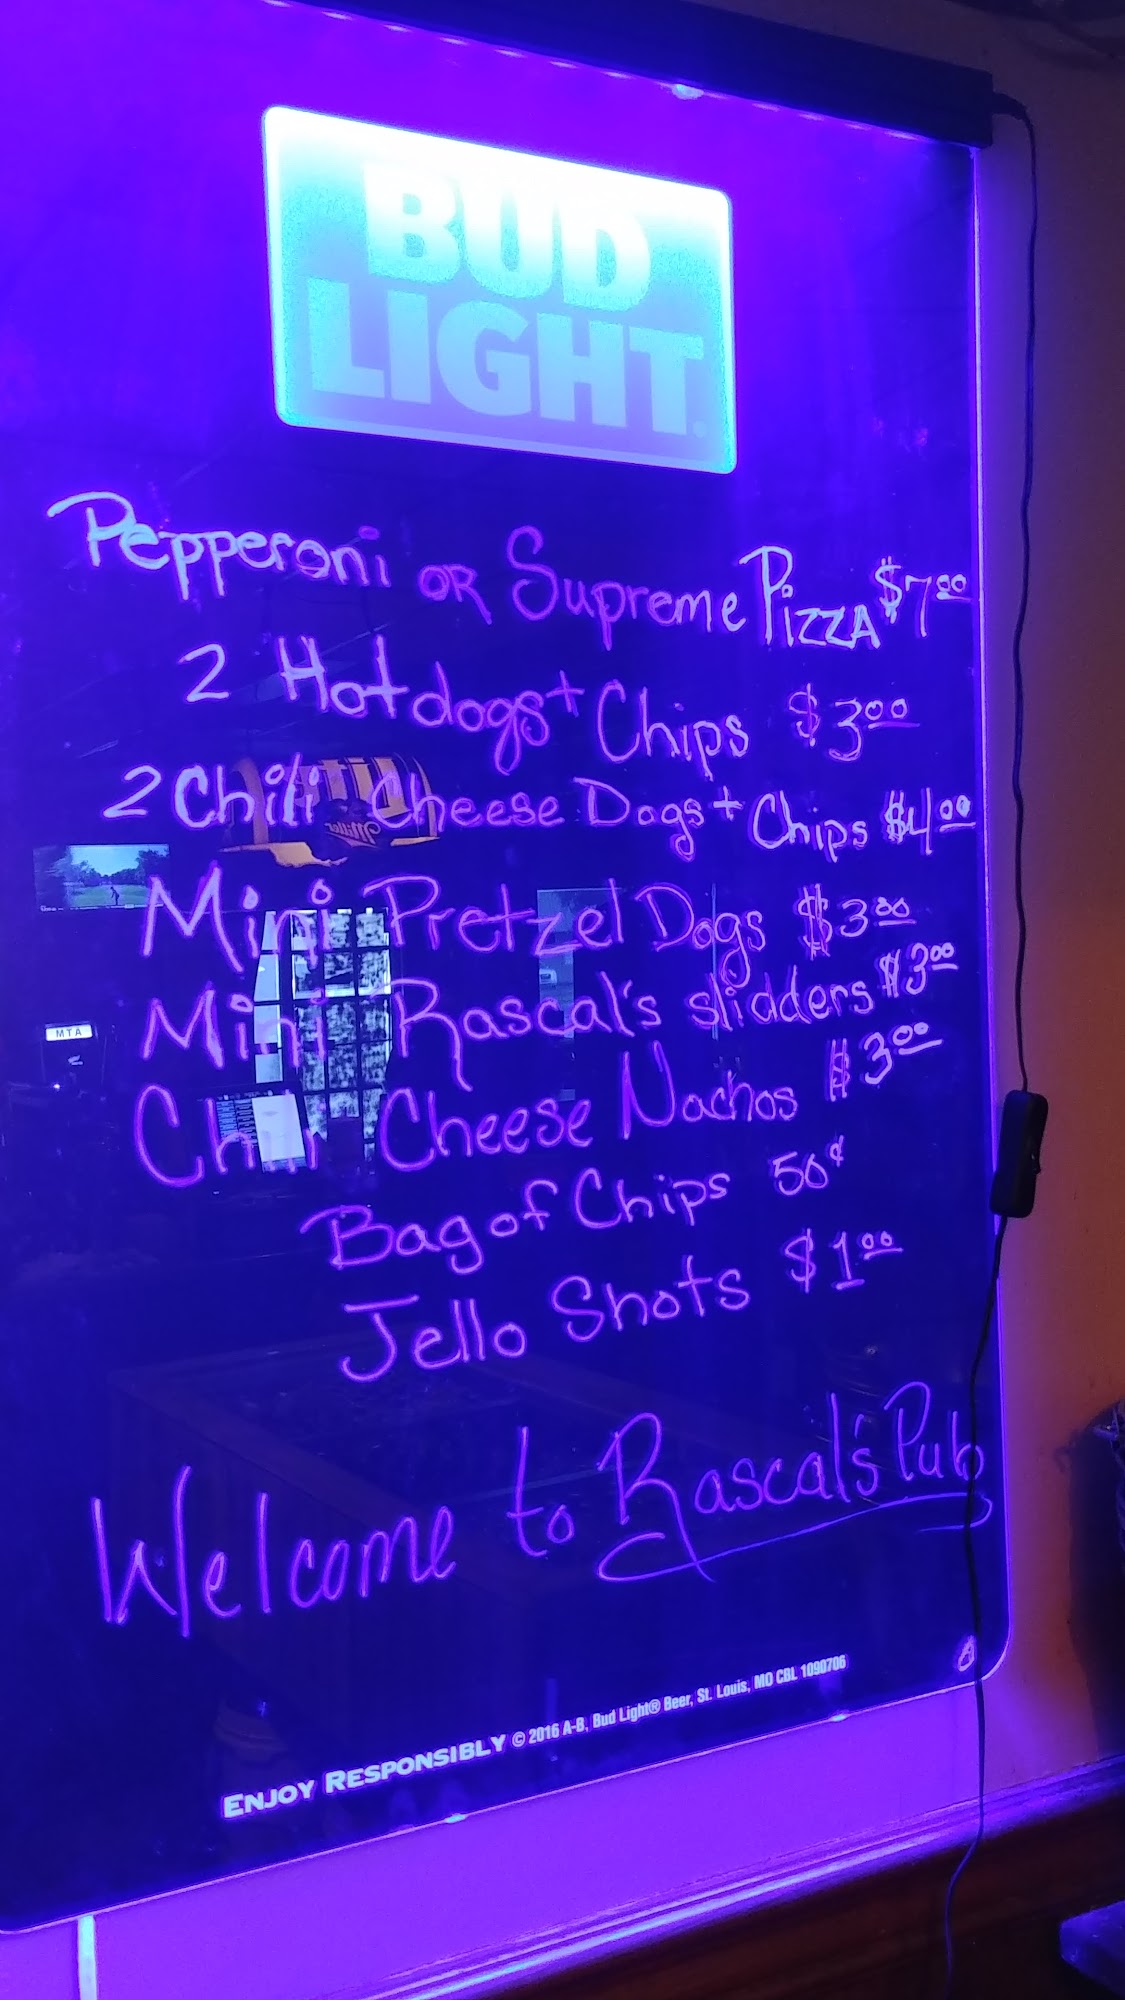 BUD
LIGHT
Pepperoni OR Supreme PIZZA $7.00
2 Hotdogs + Chips $3.00
2 Chili Cheese Dogs + Chips $4.00
Mini Pretzel Dogs $3.00
Mini Rascal's slidders $3.00
Chili Cheese Nachos $3.00
Bag of Chips 50¢
Jello Shots $1.00
Welcome to Rascal's Pub
ENJOY RESPONSIBLY © 2016 A-B, Bud Light® Beer, St. Louis, MO CBL 1090706
MTA